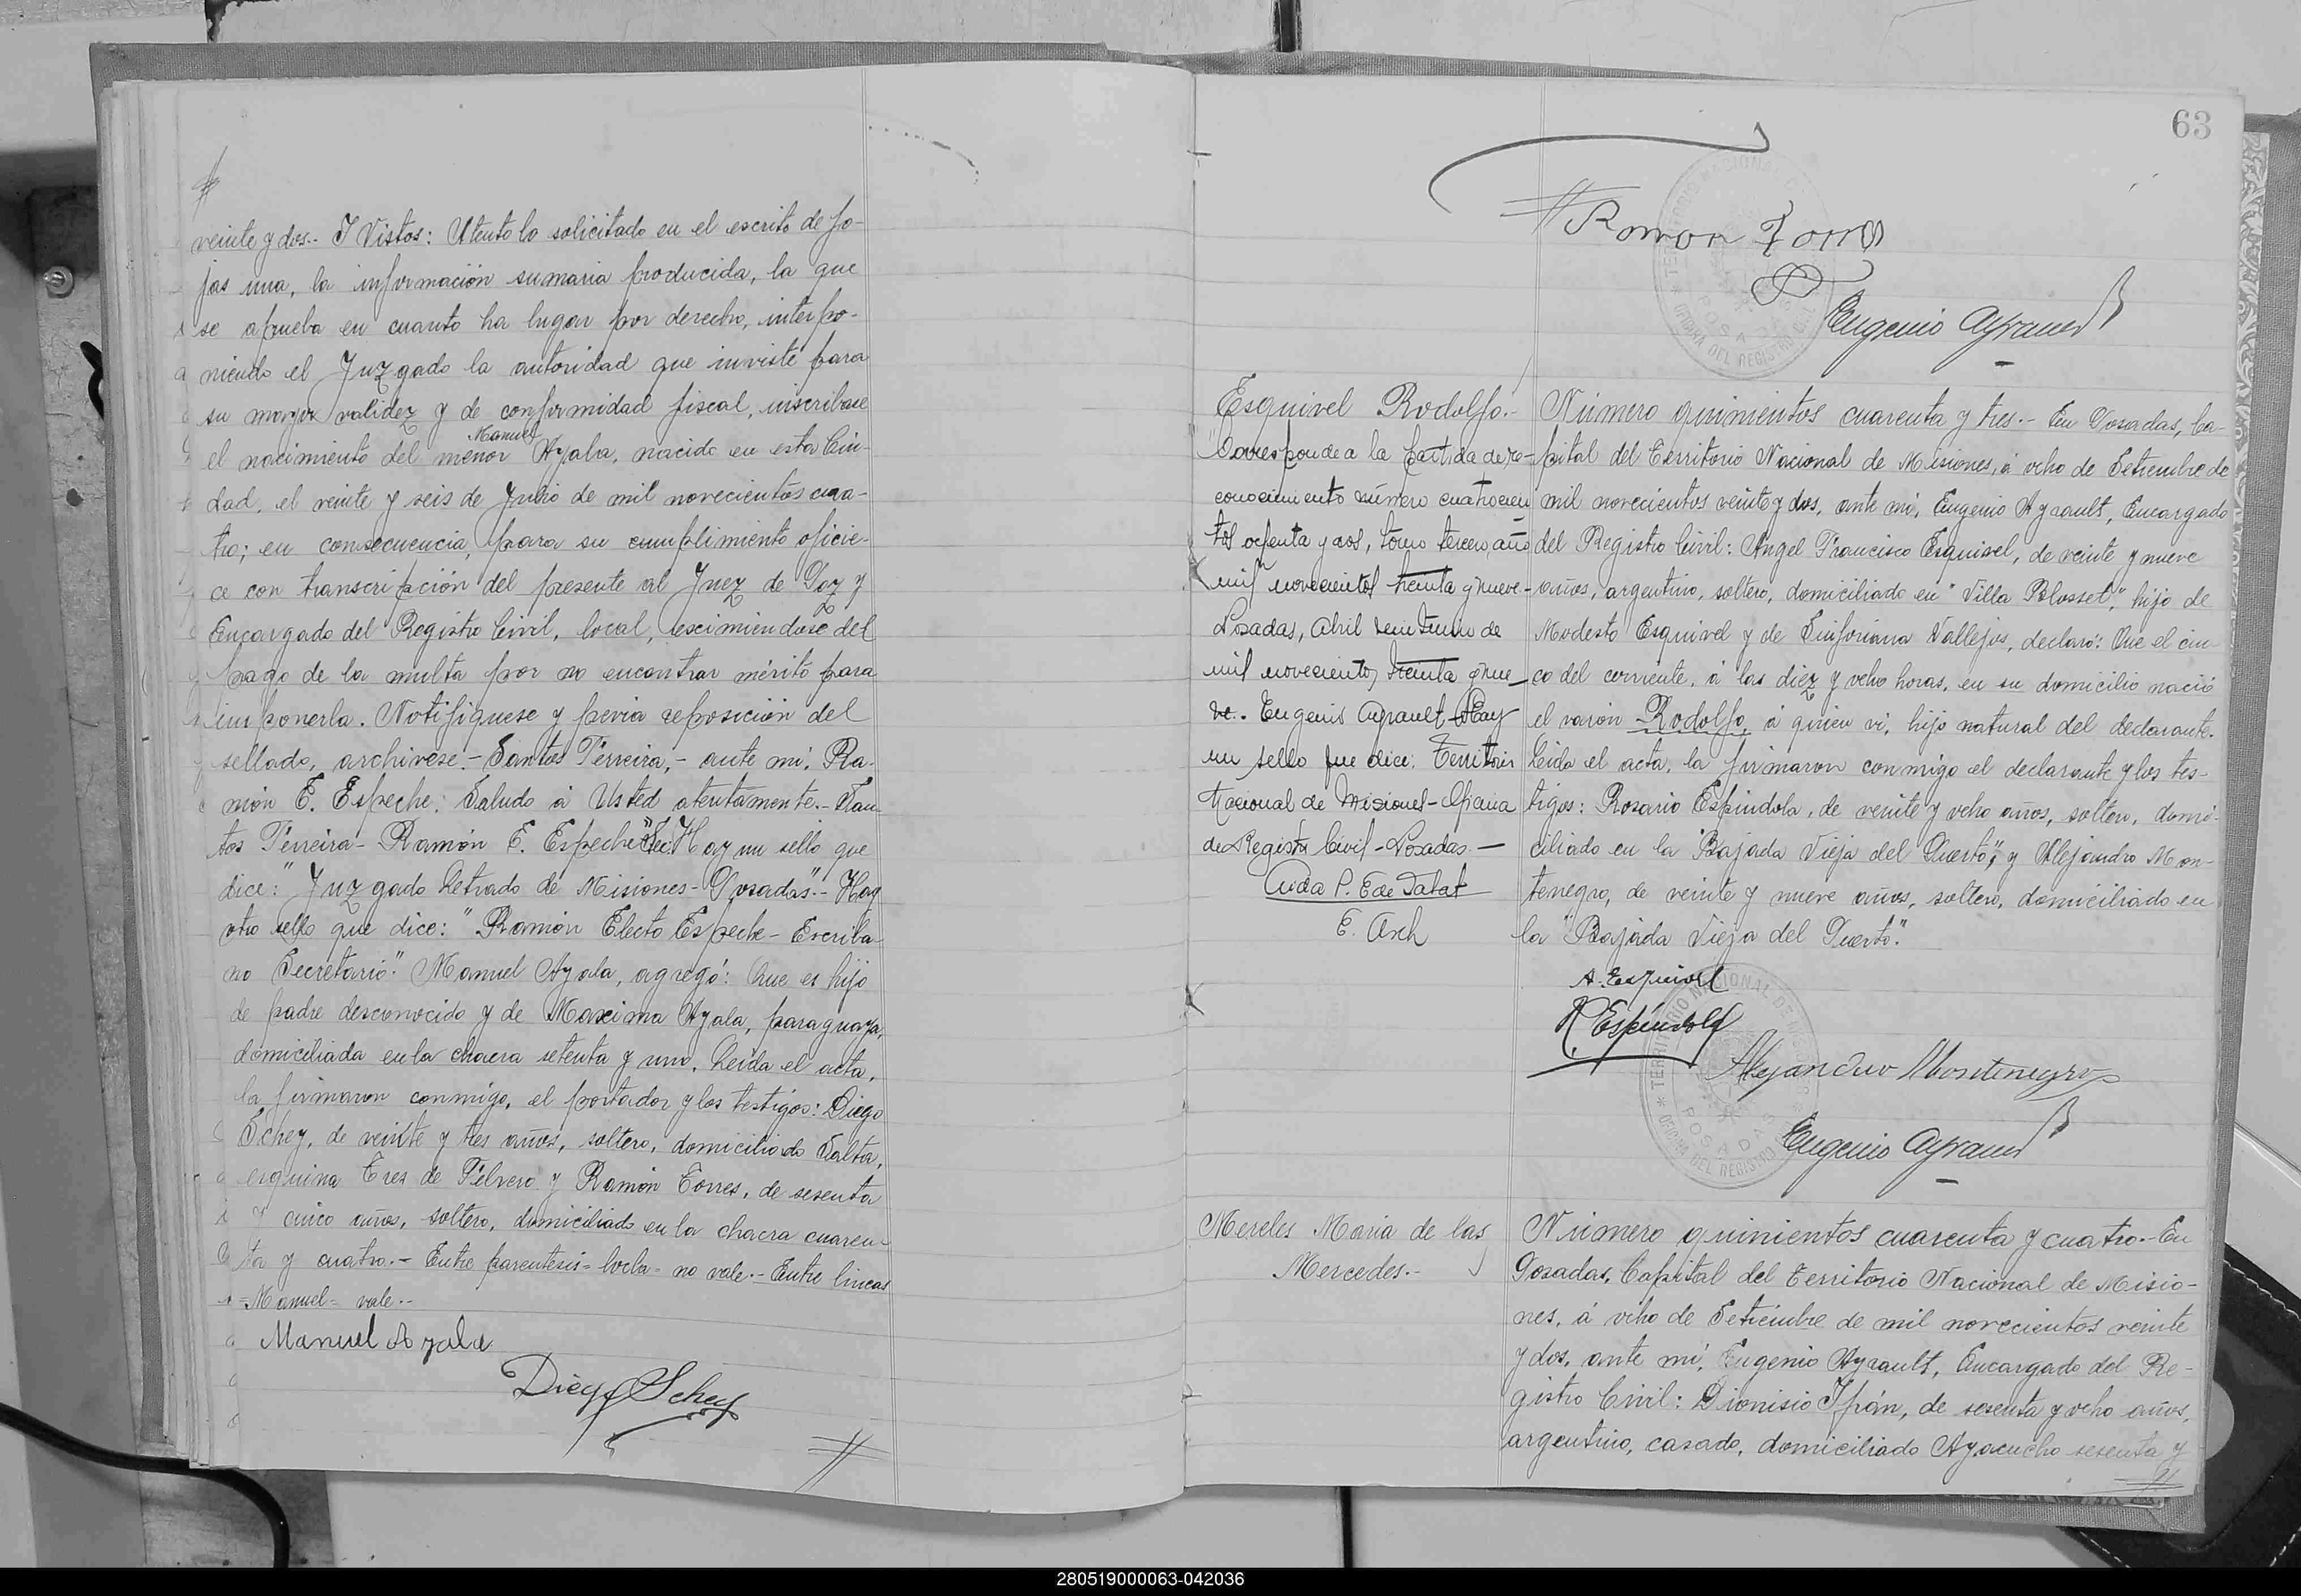 veinte y dos.- Y Vistos: Atento lo solicitado en el escrito de fo-
jas una, la información sumaria producida, la que
se aprueba en cuanto ha lugar por derecho, interpo-
niendo el Juzgado la autoridad que inviste para
su mayor validez y de conformidad fiscal, inscríbase
Manuel
el nacimiento del menor Ayala, nacido en esta Ciu-
dad, el veinte y seis de Julio de mil novecientos cua-
tro; en consecuencia, para su cumplimiento ofície-
ce con transcripción del presente al Juez de Paz y
Encargado del Registro Civil, local, excimiendose del
pago de la multa por no encontrar mérito para
imponerla. Notifíquese y prévia reposición del
sellado, archívese.- Santos Ferreira,- ante mí, Ra-
món E. Espeche: Saludo á Usted atentamente.- San-
tos Ferreira- Ramón E. Espeche Sec. Hay un sello que
dice: "Juzgado Letrado de Misiones- Posadas".- Hay
otro sello que dice: "Ramón Electo Espeche- Escriba-
no Secretario." Manuel Ayala, agregó: Que es hijo
de padre desconocido y de Maxima Ayala, paraguaya,
domiciliada en la chacra setenta y uno. Leída el acta,
la firmaron conmigo, el portador y los testigos: Diego
Schey, de veinte y tres años, soltero, domiciliado Salta,
esquina Tres de Febrero y Ramón Torres, de sesenta
y cinco años, soltero, domiciliado en la chacra cuaren-
ta y cuatro.- Entre parentesis= no vale.- Entre líneas
=Manuel= vale.-
Manuel Ayala
Diego Schey
63
Ramon Torres
Eugenio Ayrault
Esquivel Rodolfo.-
Corresponde a la partida de re-
conocimiento número cuatrocien
tos ochenta y dos, tomo tercero año
mil novecientos treinta y nueve-
Posadas, Abril veintiuno de
mil novecientos treinta y nue-
ve. Eugenio Ayrault- Hay
un sello que dice: Territorio
Nacional de Misiones- Oficina
de Registro Civil- Posadas.-
E. Asch
Número quinientos cuarenta y tres.- En Posadas, Ca-
pital del Territorio Nacional de Misiones, á ocho de Setiembre de
mil novecientos veinte y dos, ante mí, Eugenio Ayrault, Encargado
del Registro Civil: Angel Francisco Esquivel, de veinte y nueve
años, argentino, soltero, domiciliado en "Villa Blosset," hijo de
Modesto Esquivel y de Sinforiana Vallejos, declaró: Que el cin-
co del corriente, á las diez y ocho horas, en su domicilio nació
el varón Rodolfo, á quien ví, hijo natural del declarante.
Leída el acta, la firmaron conmigo el declarante y los tes-
tigos: Rosario Espíndola, de veinte y ocho años, soltero, domi-
ciliado en la "Bajada Vieja del Puerto", y Alejandro Mon-
tenegro, de veinte y nueve años, soltero, domiciliado en
la "Bajada Vieja del Puerto."
A. Esquivel
R. Espíndola
Alejandro Montenegro
TERRITORIO NACIONAL DE MISIONES
OFICINA DEL REGISTRO CIVIL
POSADAS
Eugenio Ayrault
Mereles María de las
Mercedes.-
Número quinientos cuarenta y cuatro.- En
Posadas, Capital del Territorio Nacional de Misio-
nes, á ocho de Setiembre de mil novecientos veinte
y dos, ante mí, Eugenio Ayrault, Encargado del Re-
gistro Civil: Dionisio Ypán, de sesenta y ocho años,
argentino, casado, domiciliado Ayacucho sesenta y
280519000063-042036